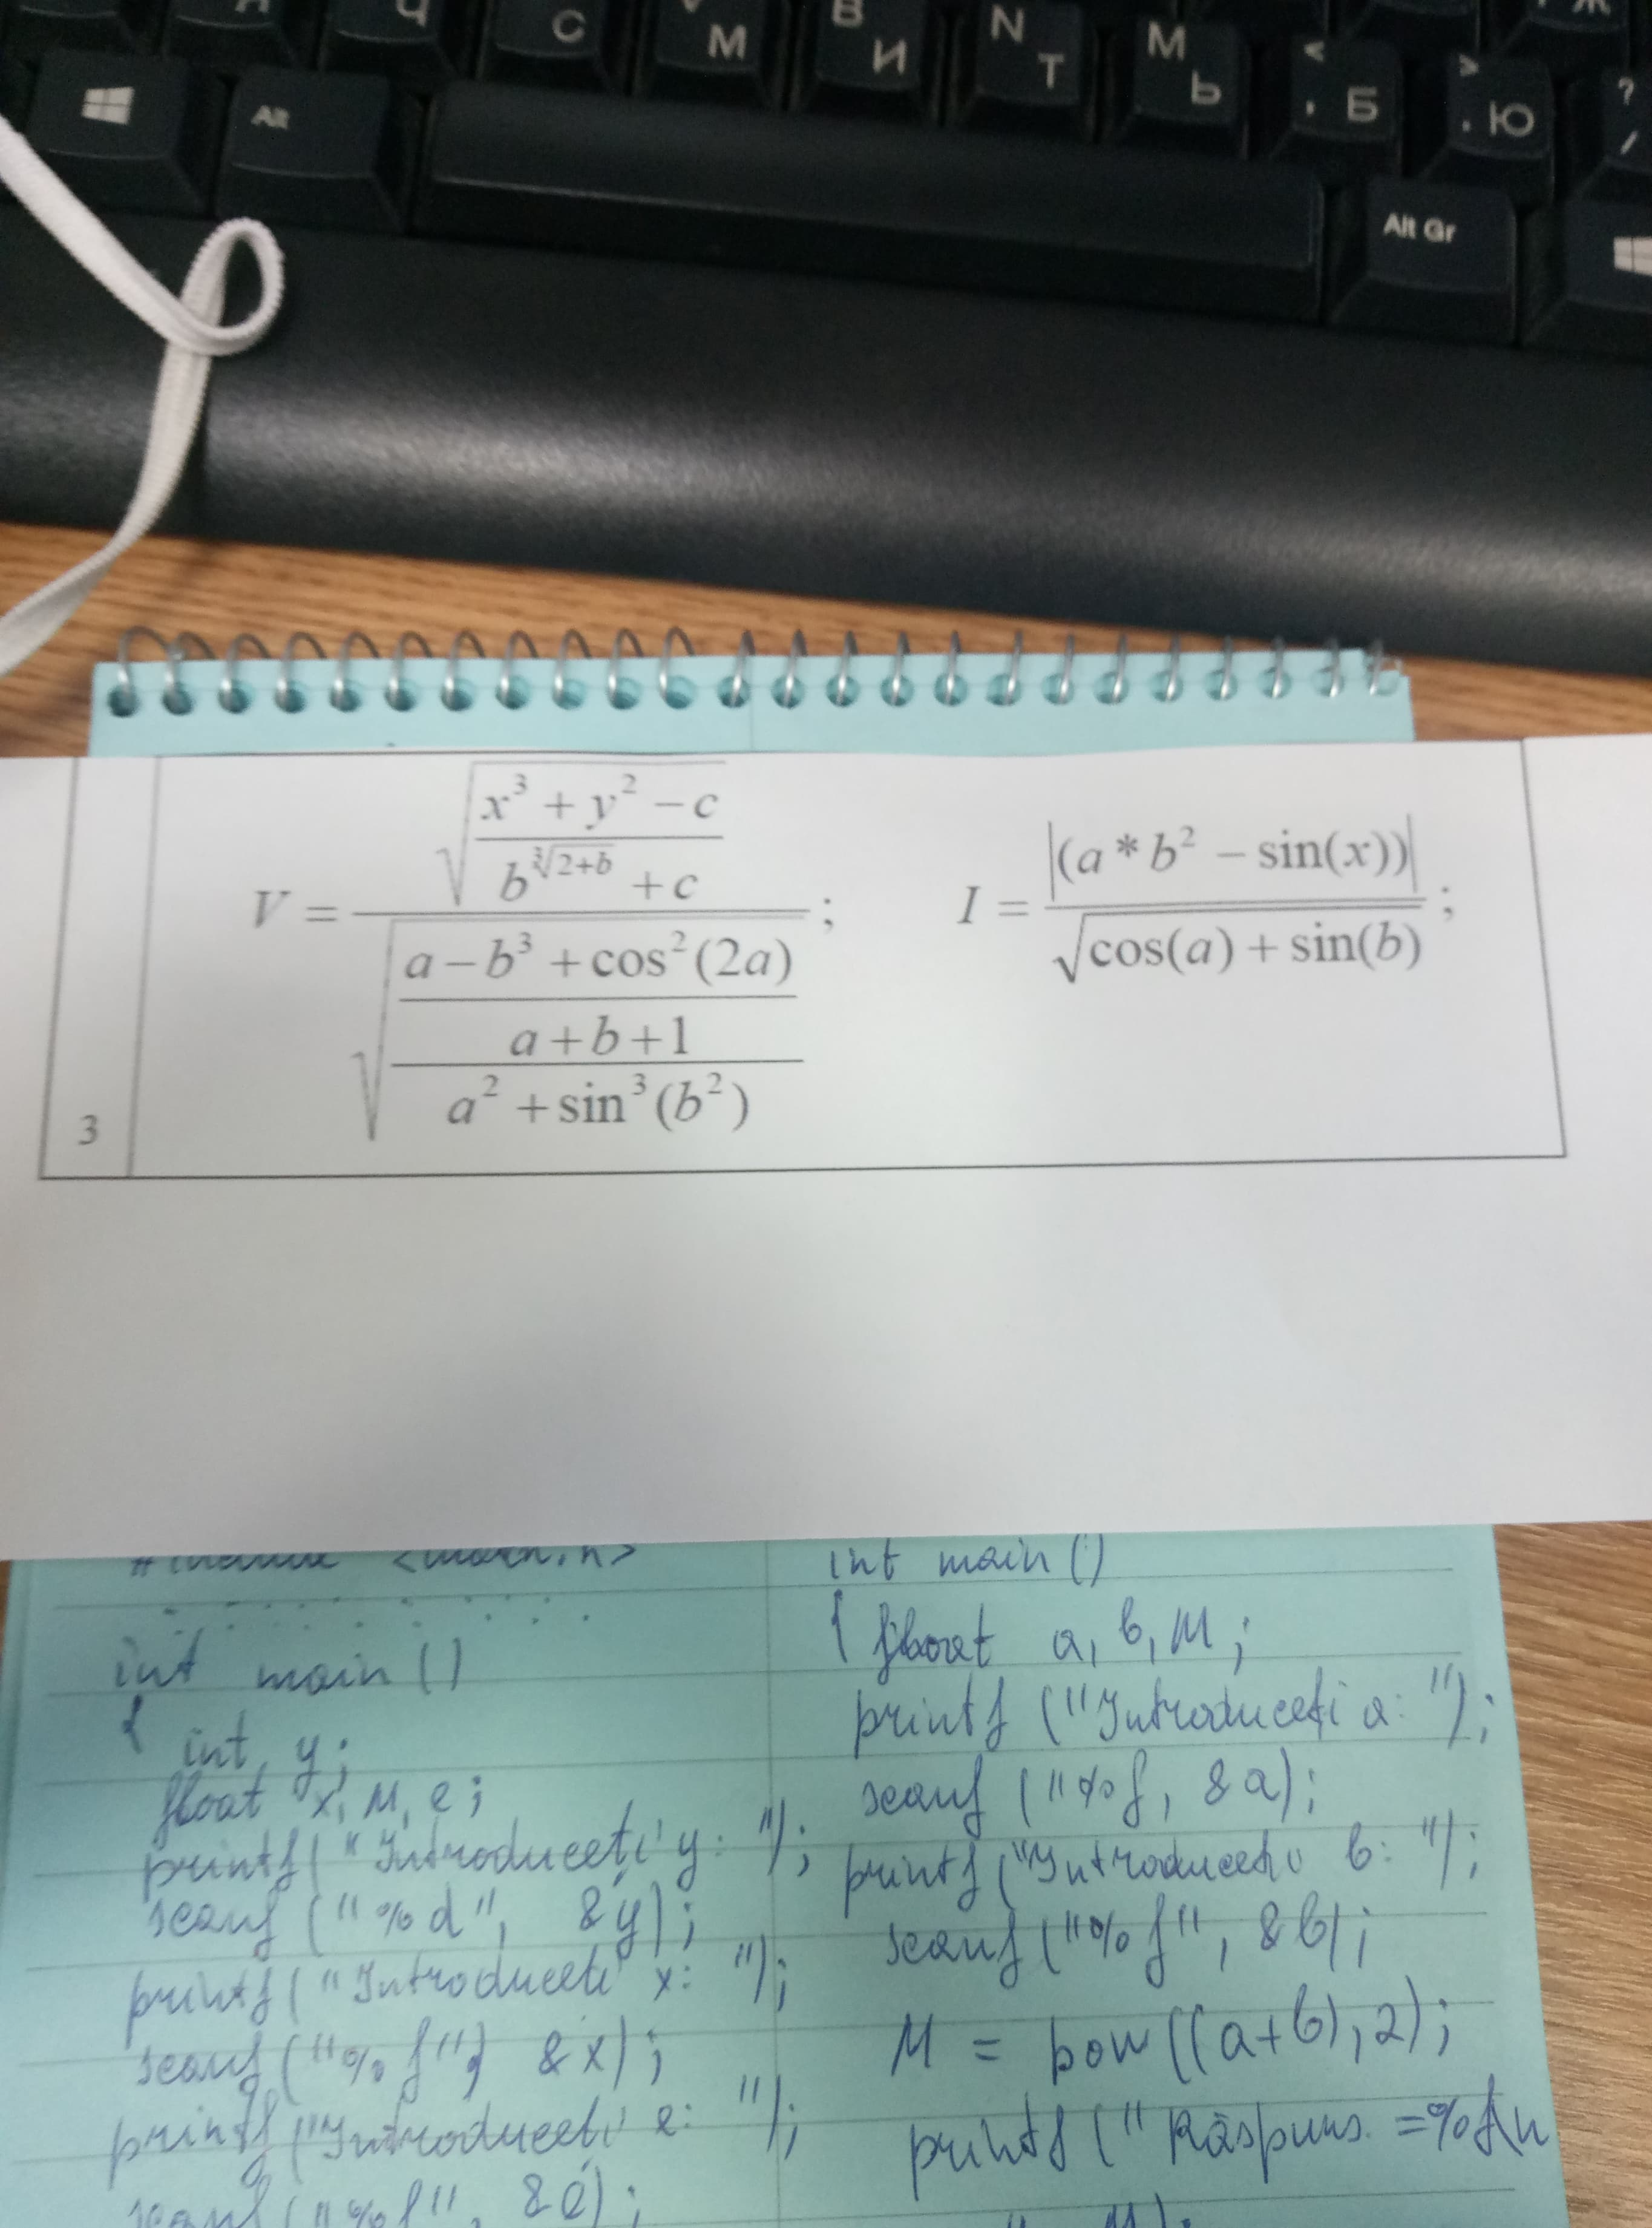 Ч С М В И N Т М Ь < , Б > . Ю ? /
Alt
Alt Gr
3
V = √((x³ + y² − c) / (b^∛(2+b) + c)) / √(((a − b³ + cos²(2a)) / (a + b + 1)) / (a² + sin³(b²))) ;
I = |(a * b² − sin(x))| / √(cos(a) + sin(b)) ;
#include <math.h>
int main()
{ int y;
float x, M, e;
printf("Introduceti y: ");
scanf("%d", &y);
printf("Introduceti x: ");
scanf("%f", &x);
printf("Introduceti e: ");
scanf("%f", &e);
int main()
{ float a, b, M;
printf("Introduceti a: ");
scanf("%f, &a);
printf("Introduceti b: ");
scanf("%f", &b);
M = pow((a+b),2);
printf("Răspuns =%f\n
", M);